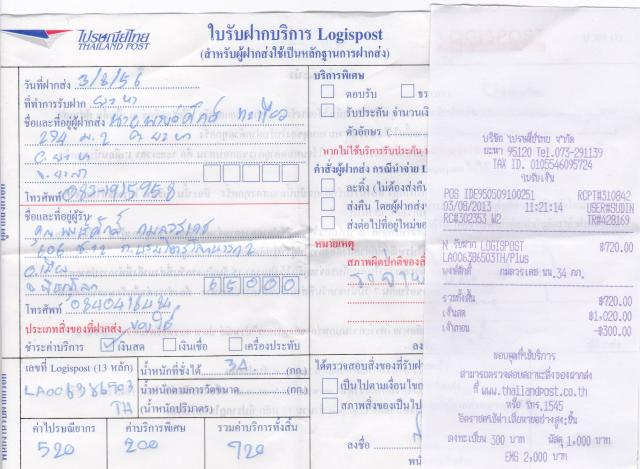 ไปรษณีย์ไทย
THAILAND POST
ใบรับฝากบริการ Logispost
(สำหรับผู้ฝากส่งใช้เป็นหลักฐานการฝากส่ง)
วันที่ฝากส่ง 3/8/56
ที่ทำการรับฝาก ยะหา
ชื่อและที่อยู่ผู้ฝากส่ง
294 ม.2 ต.ยะหา
อ.ยะหา
จ.ยะลา
โทรศัพท์ 083-1915958
ชื่อและที่อยู่ผู้รับ
คุณ พงษ์ศักดิ์ กมลวรเดช
อ.เมือง
จ.พิษณุโลก 65000
โทรศัพท์ 0840418484
ประเภทสิ่งของที่ฝากส่ง
ชำระค่าบริการ เงินสด เงินเชื่อ เครื่องประทับ
เลขที่ Logispost (13 หลัก)
LA006386503
TH
น้ำหนักที่ชั่งได้ 34 (กก.)
น้ำหนักตามการวัดขนาด
(น้ำหนักปริมาตร) (กก.)
ค่าไปรษณียากร ค่าบริการพิเศษ รวมค่าบริการทั้งสิ้น
520 200 720
บริการพิเศษ
ตอบรับ
รับประกัน จำนวนเงิ
ตัวอักษร (
หากไม่ใช้บริการรับประกัน
คำสั่งผู้ฝากส่ง กรณีนำจ่าย
ละทิ้ง (ไม่ต้องส่ง
ส่งคืน โดยผู้ฝากส่ง
ส่งต่อไปที่อยู่ใหม่ของ
หมายเหตุ
สภาพผิดปกติของสิ่
ได้ตรวจสอบสิ่งของที่รับฝ
เป็นไปตามเงื่อนไข
สภาพสิ่งของเป็นไป
ลงชื่อ
บริษัท ไปรษณีย์ไทย จำกัด
ยะหา 95120 Tel.073-291139
TAX ID. 0105546095724
ใบรับเงิน
POS IDE950509100251 RCPT#310842
03/08/2013 11:21:14 USER#SUDIN
RC#302353 W2 TR#428169
N รับฝาก LOGISPOST ฿720.00
LA006386503TH/Plus
พงษ์ศักดิ์ กมลวรเดช นน.34 กก.
รวมทั้งสิ้น ฿720.00
เงินสด ฿1,020.00
เงินทอน -฿300.00
ขอบคุณที่ใช้บริการ
สามารถตรวจสอบสถานะสิ่งของฝากส่ง
ที่ www.thailandpost.co.th
หรือ โทร.1545
อัตราชดใช้ค่าเสียหายอย่างสูง:ชิ้น
ลงทะเบียน 300 บาท พัสดุ 1,000 บาท
EMS 2,000 บาท